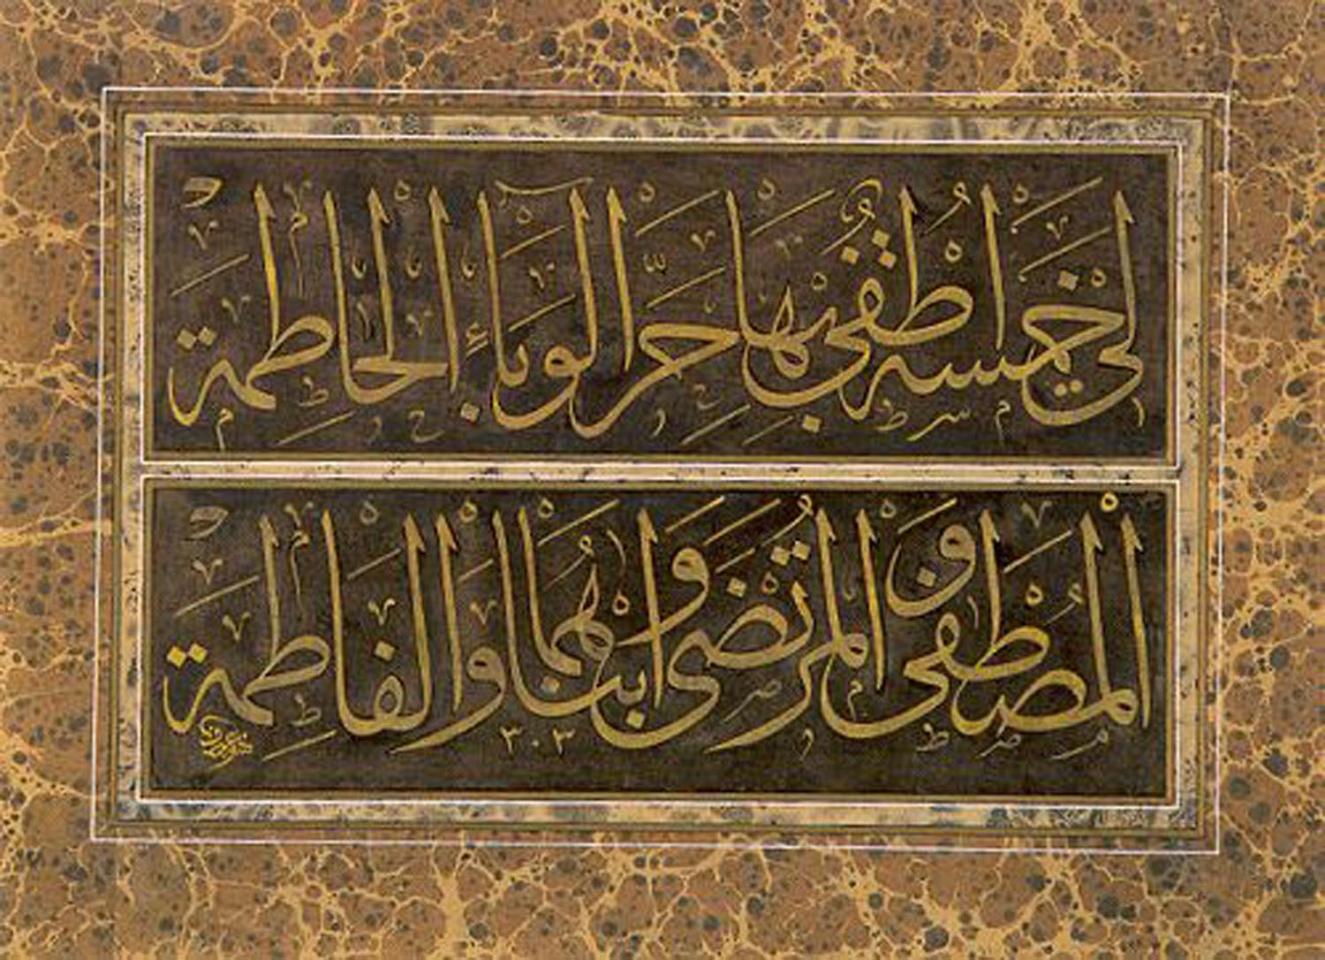 لي خمسة اطفي بها حر الوباء الحاطمة
المصطفى و المرتضى و ابناهما و الفاطمة
٣٠٣